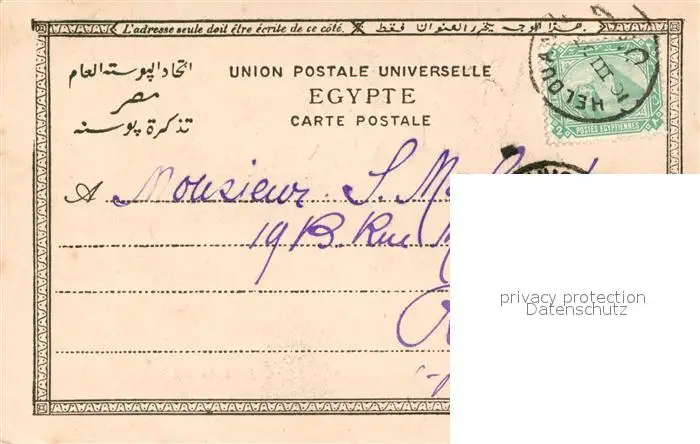 L'adresse seule doit être écrite de ce côté. هذا الوجه يحرر العنوان فقط
اتحاد البوسته العام
مصر
تذكرة بوسته
UNION POSTALE UNIVERSELLE
EGYPTE
CARTE POSTALE
HELOUA
III
2
POSTES EGYPTIENNES
A Monsieur S. M
19 B. Rue
privacy protection
Datenschutz